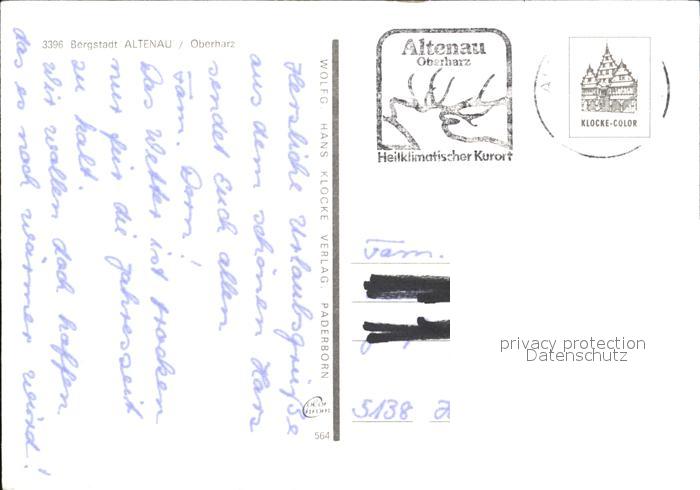 3396 Bergstadt ALTENAU / Oberharz
Herzliche Urlaubsgrüße
aus dem schönen Harz
sendet Euch allen
Fam. Dorn!
Das Wetter ist trocken
nur für die Jahreszeit
zu kalt.
Wir wollen doch hoffen
das es noch wärmer wird!
WOLFG. HANS KLOCKE VERLAG, PADERBORN
564
Altenau
Oberharz
Heilklimatischer Kurort
KLOCKE-COLOR
Fam.
5138
privacy protection
Datenschutz